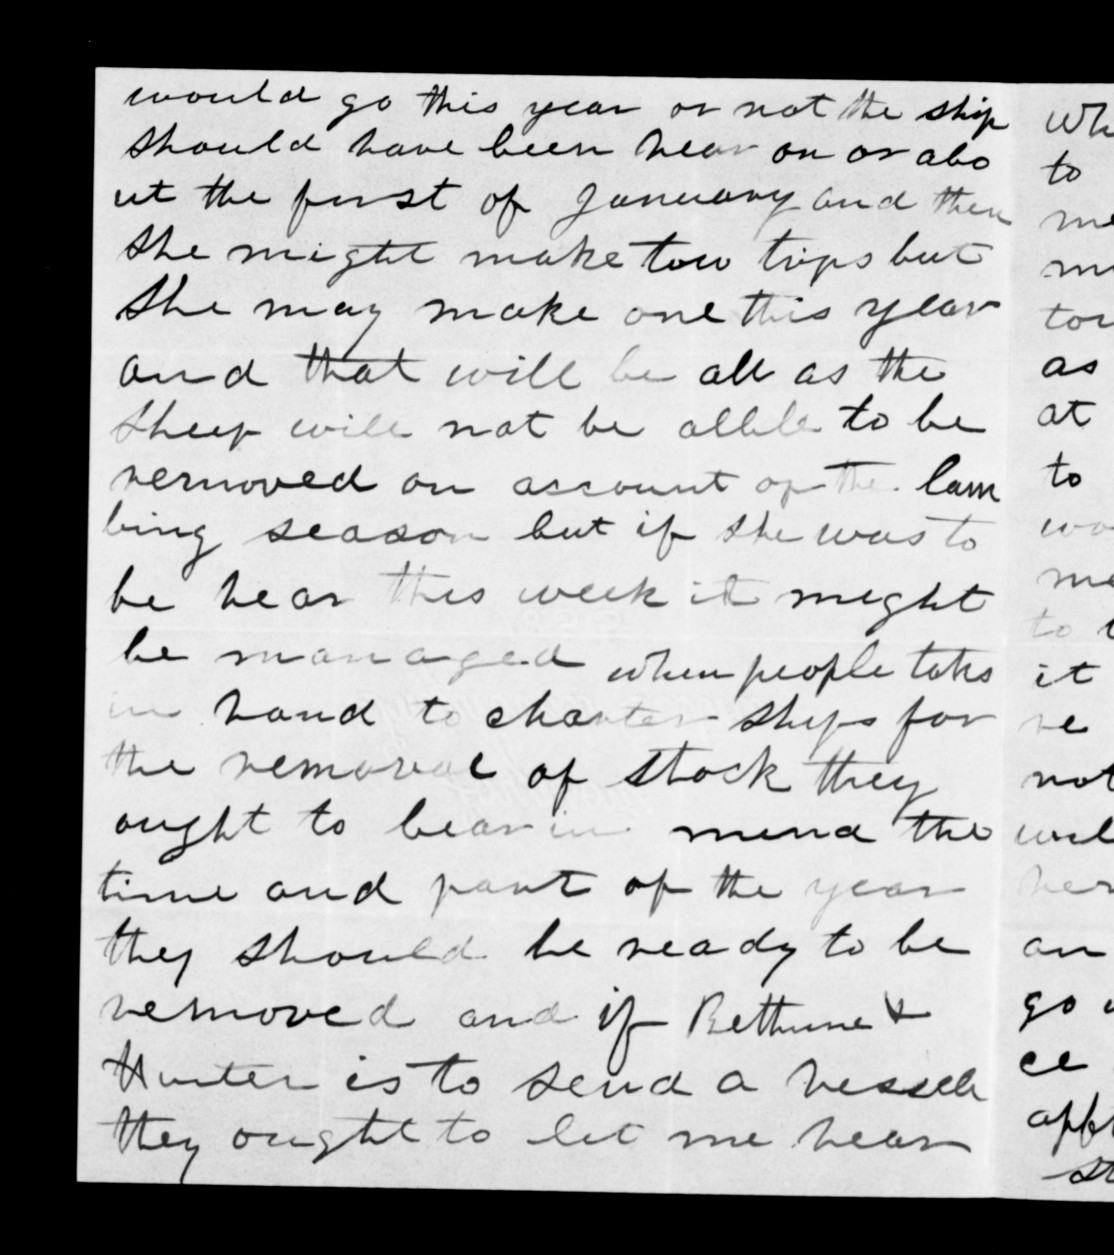 would go this year or not the ship
should have been hear on or abo
ut the first of January and then
she might make tow trips but
She may make one this year
and that will be all as the
Sheep will not be allble to be
removed on account of the lam
bing season but if she was to
be hear this week it might
be managed when people take
in hand to charter ships for
the removal of stock they
ought to bear in mind the
time and part of the year
they should be ready to be
removed and if Bethune &
Hunter is to send a vessell
they ought to let me hear
Wh
to
me
mi
tou
as
at
to
wo
me
to
it
re
not
wil
her
an
go
ce
app
st